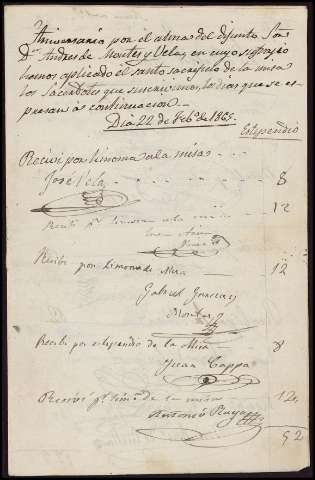 Aniversario por el alma del difunto Sor
Dn. Andres de Montes y Vela, en cuyo sufragio
hemos aplicado el santo sacrificio de la misa
los Sacerdotes que suscrivimos, los dias que se es-
presan à continuacion.
Dia 22 de Febo. de 1865.
Estipendio
Recivi por limosna de la misa 8
José Vela
Recibi pr. limosna de la misa 12
Recibi por limosna de Misa 12
Gabriel Garcia y
Montes
Recibi por estipendio de la Misa 8
Juan Cappa
Recivi pr. limna. de la misa 12
Antonio Raya
52